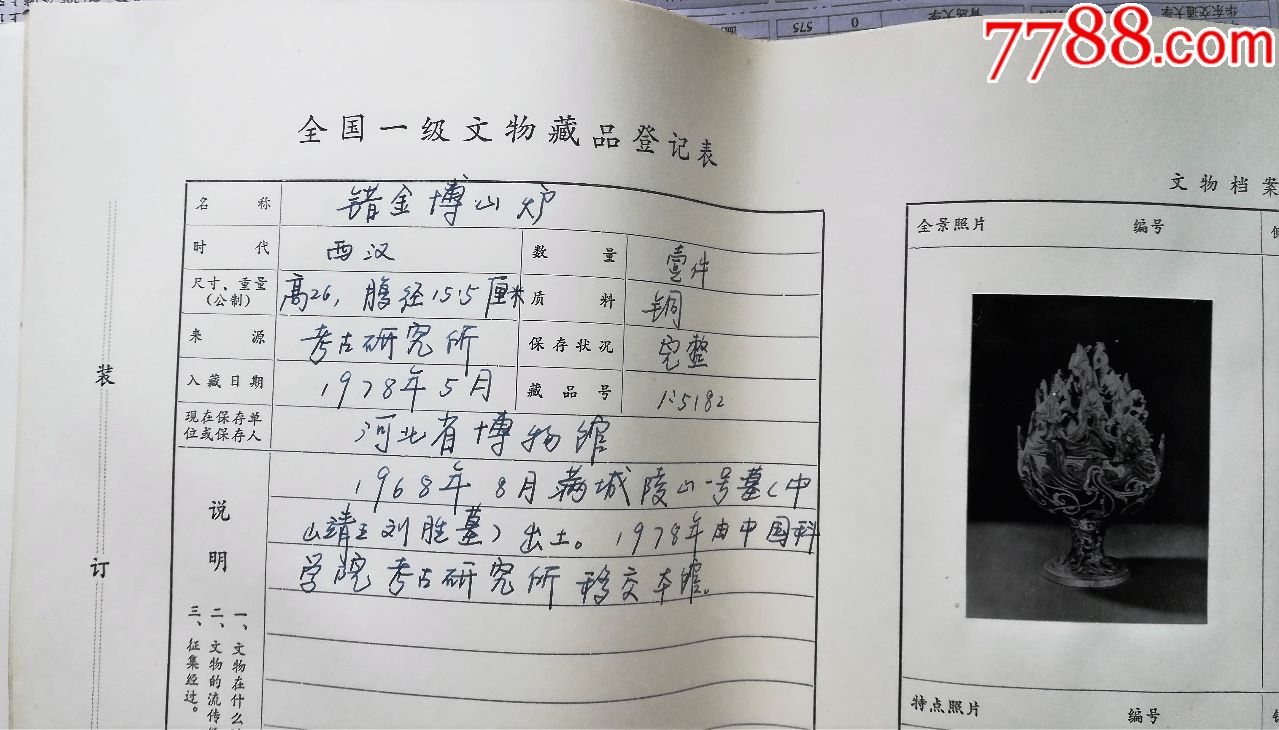 华东交通大学
青岛大学
0
575
7788.com
全国一级文物藏品登记表
名称 错金博山炉
时代 西汉 数量 壹件
尺寸、重量（公制） 高26，腹径15.5厘米 质料 铜
来源 考古研究所 保存状况 完整
入藏日期 1978年5月 藏品号 1:5182
现在保存单位或保存人 河北省博物馆
说明
1968年8月满城陵山一号墓（中
山靖王刘胜墓）出土。1978年由中国科
学院考古研究所移交本馆。
一、文物在什么
二、文物的流传
三、征集经过。
装
订
文物档案
全景照片 编号
特点照片 编号